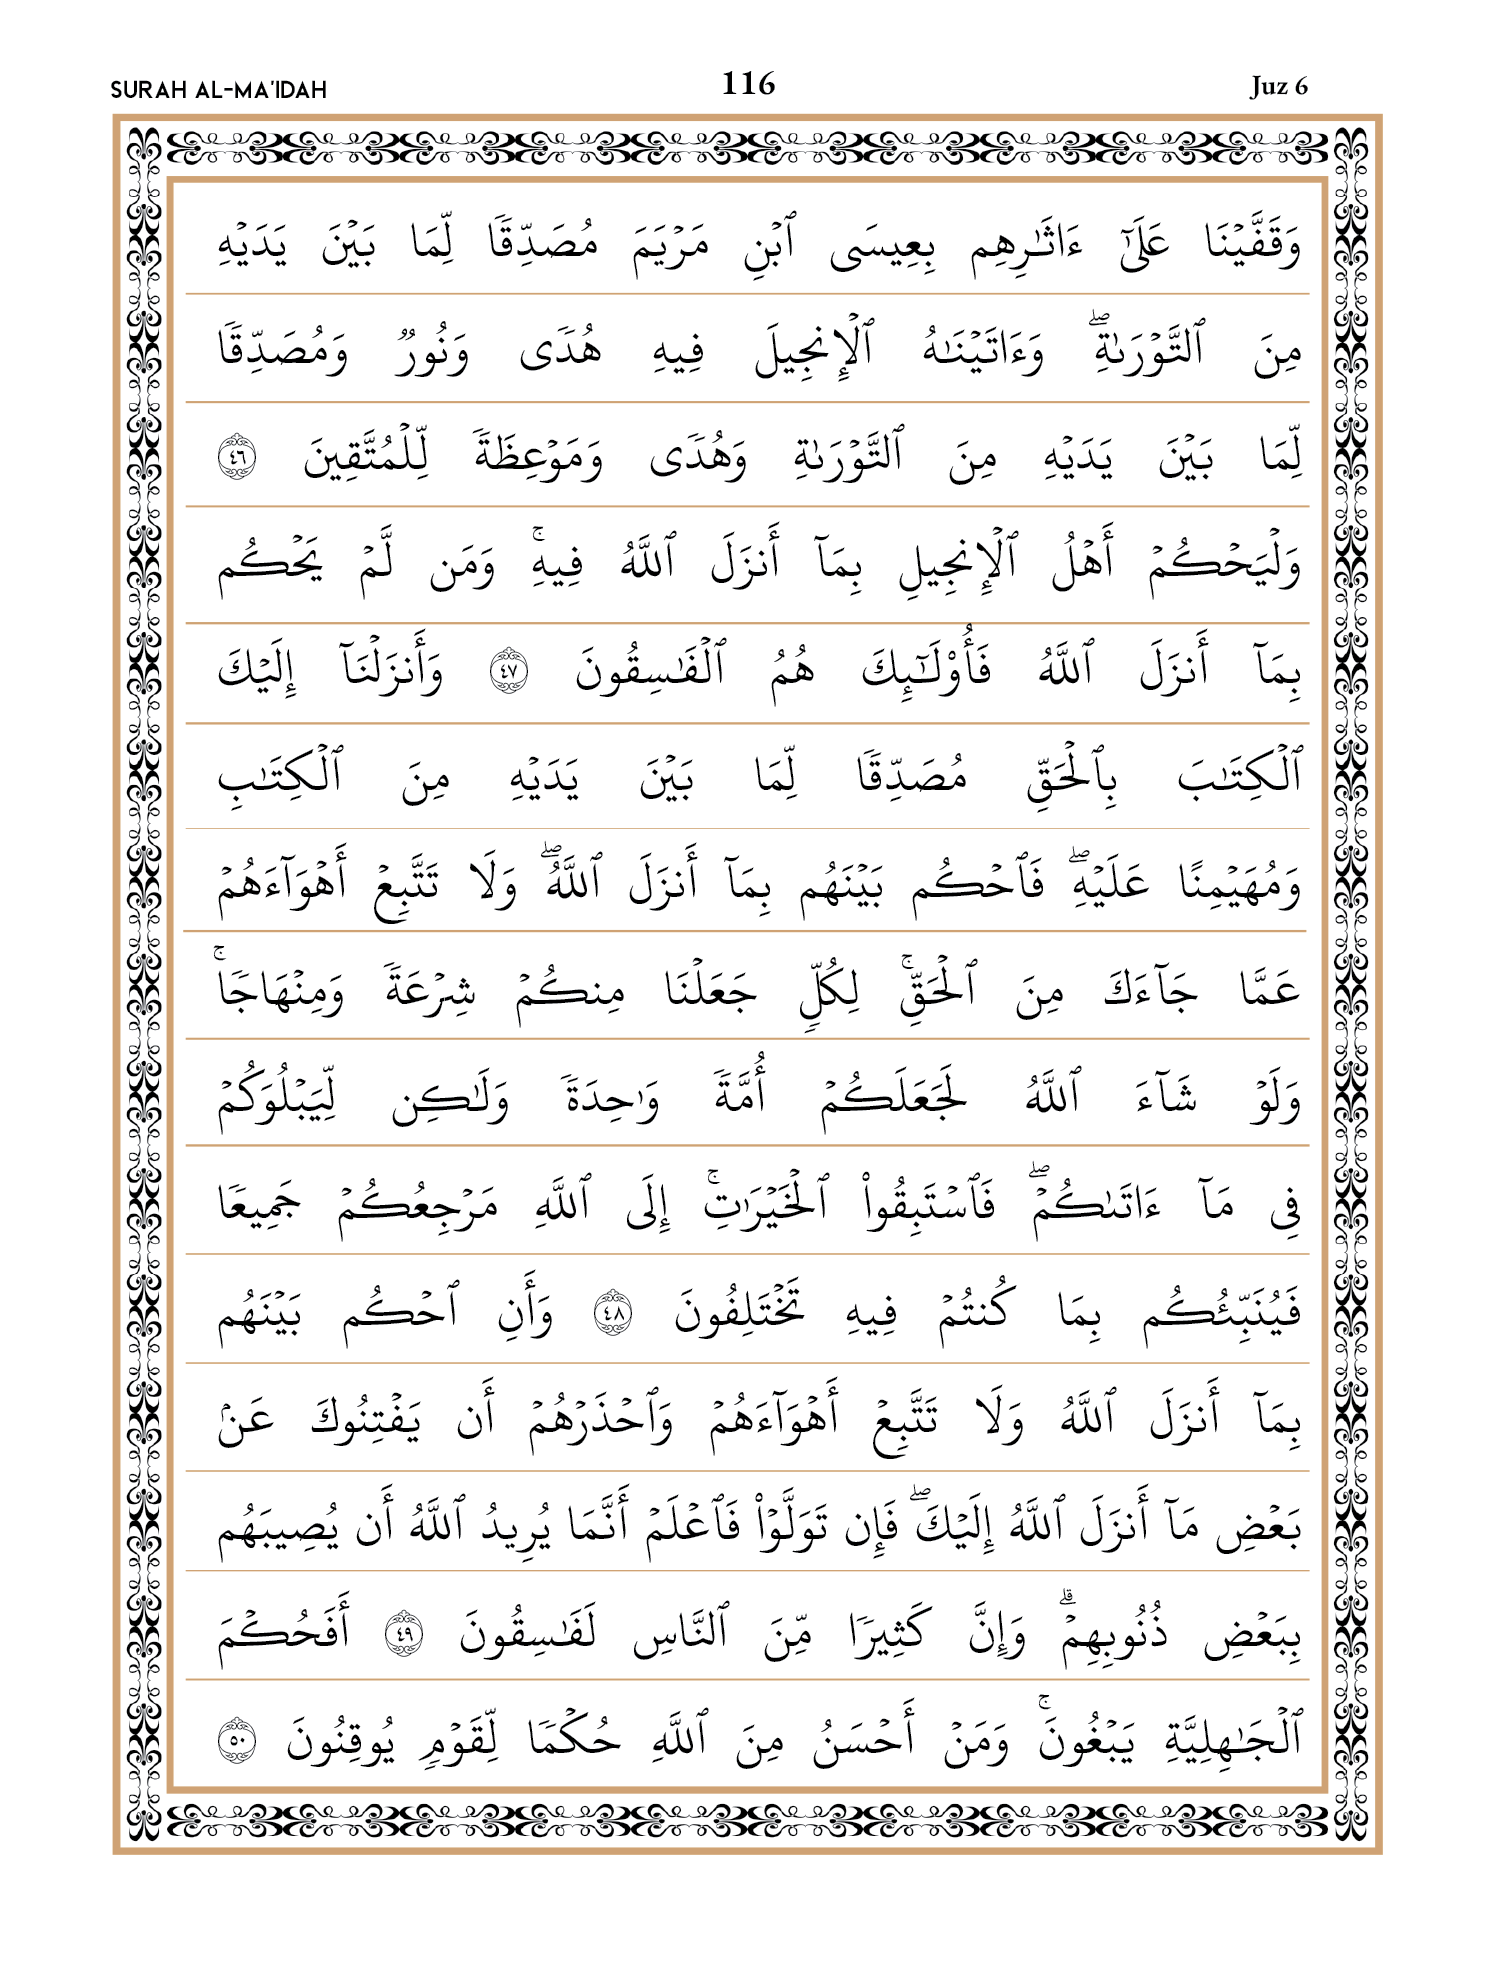 SURAH AL-MA'IDAH
116
Juz 6
وَقَفَّيۡنَا عَلَىٰٓ ءَاثَٰرِهِم بِعِيسَى ٱبۡنِ مَرۡيَمَ مُصَدِّقٗا لِّمَا بَيۡنَ يَدَيۡهِ
مِنَ ٱلتَّوۡرَىٰةِۖ وَءَاتَيۡنَٰهُ ٱلۡإِنجِيلَ فِيهِ هُدٗى وَنُورٞ وَمُصَدِّقٗا
لِّمَا بَيۡنَ يَدَيۡهِ مِنَ ٱلتَّوۡرَىٰةِ وَهُدٗى وَمَوۡعِظَةٗ لِّلۡمُتَّقِينَ ٤٦
وَلۡيَحۡكُمۡ أَهۡلُ ٱلۡإِنجِيلِ بِمَآ أَنزَلَ ٱللَّهُ فِيهِۚ وَمَن لَّمۡ يَحۡكُم
بِمَآ أَنزَلَ ٱللَّهُ فَأُوْلَٰٓئِكَ هُمُ ٱلۡفَٰسِقُونَ ٤٧ وَأَنزَلۡنَآ إِلَيۡكَ
ٱلۡكِتَٰبَ بِٱلۡحَقِّ مُصَدِّقٗا لِّمَا بَيۡنَ يَدَيۡهِ مِنَ ٱلۡكِتَٰبِ
وَمُهَيۡمِنًا عَلَيۡهِۖ فَٱحۡكُم بَيۡنَهُم بِمَآ أَنزَلَ ٱللَّهُۖ وَلَا تَتَّبِعۡ أَهۡوَآءَهُمۡ
عَمَّا جَآءَكَ مِنَ ٱلۡحَقِّۚ لِكُلّٖ جَعَلۡنَا مِنكُمۡ شِرۡعَةٗ وَمِنۡهَاجٗاۚ
وَلَوۡ شَآءَ ٱللَّهُ لَجَعَلَكُمۡ أُمَّةٗ وَٰحِدَةٗ وَلَٰكِن لِّيَبۡلُوَكُمۡ
فِي مَآ ءَاتَىٰكُمۡۖ فَٱسۡتَبِقُواْ ٱلۡخَيۡرَٰتِۚ إِلَى ٱللَّهِ مَرۡجِعُكُمۡ جَمِيعٗا
فَيُنَبِّئُكُم بِمَا كُنتُمۡ فِيهِ تَخۡتَلِفُونَ ٤٨ وَأَنِ ٱحۡكُم بَيۡنَهُم
بِمَآ أَنزَلَ ٱللَّهُ وَلَا تَتَّبِعۡ أَهۡوَآءَهُمۡ وَٱحۡذَرۡهُمۡ أَن يَفۡتِنُوكَ عَنۢ
بَعۡضِ مَآ أَنزَلَ ٱللَّهُ إِلَيۡكَۖ فَإِن تَوَلَّوۡاْ فَٱعۡلَمۡ أَنَّمَا يُرِيدُ ٱللَّهُ أَن يُصِيبَهُم
بِبَعۡضِ ذُنُوبِهِمۡۗ وَإِنَّ كَثِيرٗا مِّنَ ٱلنَّاسِ لَفَٰسِقُونَ ٤٩ أَفَحُكۡمَ
ٱلۡجَٰهِلِيَّةِ يَبۡغُونَۚ وَمَنۡ أَحۡسَنُ مِنَ ٱللَّهِ حُكۡمٗا لِّقَوۡمٖ يُوقِنُونَ ٥٠